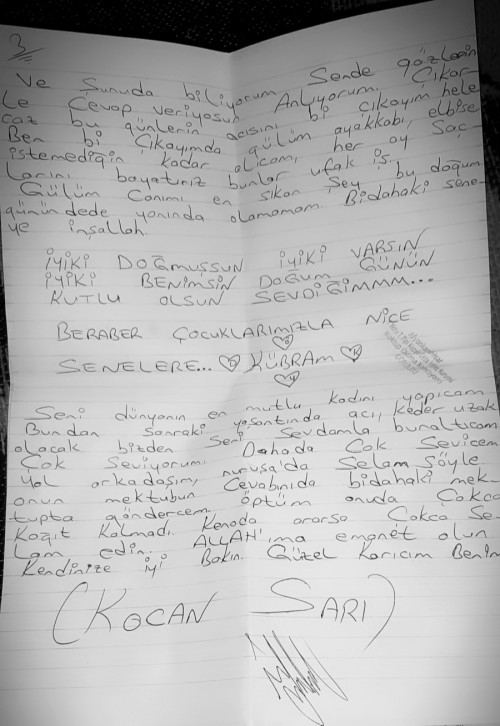 3
Ve Şunuda biliyorum Sende gözlerin
le Cevap veriyosun Anlıyorum. Çıkar-
caz bu günlerin acısını bi çıkayım hele
Ben bi Çıkayımda gülüm ayakkabı, elbise
istemediğin kadar alıcam, her ay Saç-
larını boyatırız bunlar ufak iş.
Gülüm Canımı en Sıkan Şey bu doğum
gününde de yanında olamamam. Bidahaki sene-
ye inşallah.
İYİKİ DOĞMUŞSUN İYİKİ VARSIN
İYİKİ BENİMSİN DOĞUM GÜNÜN
KUTLU OLSUN SEVDİĞİMMM...
BERABER ÇOCUKLARIMIZLA NİCE
SENELERE... KÜBRAM
Seni dünyanın en mutlu kadını yapıcam
Bundan sonraki yaşantında acı, keder uzak
olacak bizden Seni Sevdamla bunaltıcam
Çok Seviyorum Dahada Çok Sevicem
Yol arkadaşım, nurusa'da Selam Söyle
onun mektubun Cevabınıda bidahaki mek-
tupta göndercem öptüm onuda Çokca
Kağıt Kalmadı. Kenada ararsa Çokca Se-
lam edin. ALLAH'ıma emanet olun
Kendinize iyi Bakın. Güzel Karıcım Benim
(KOCAN SARI)